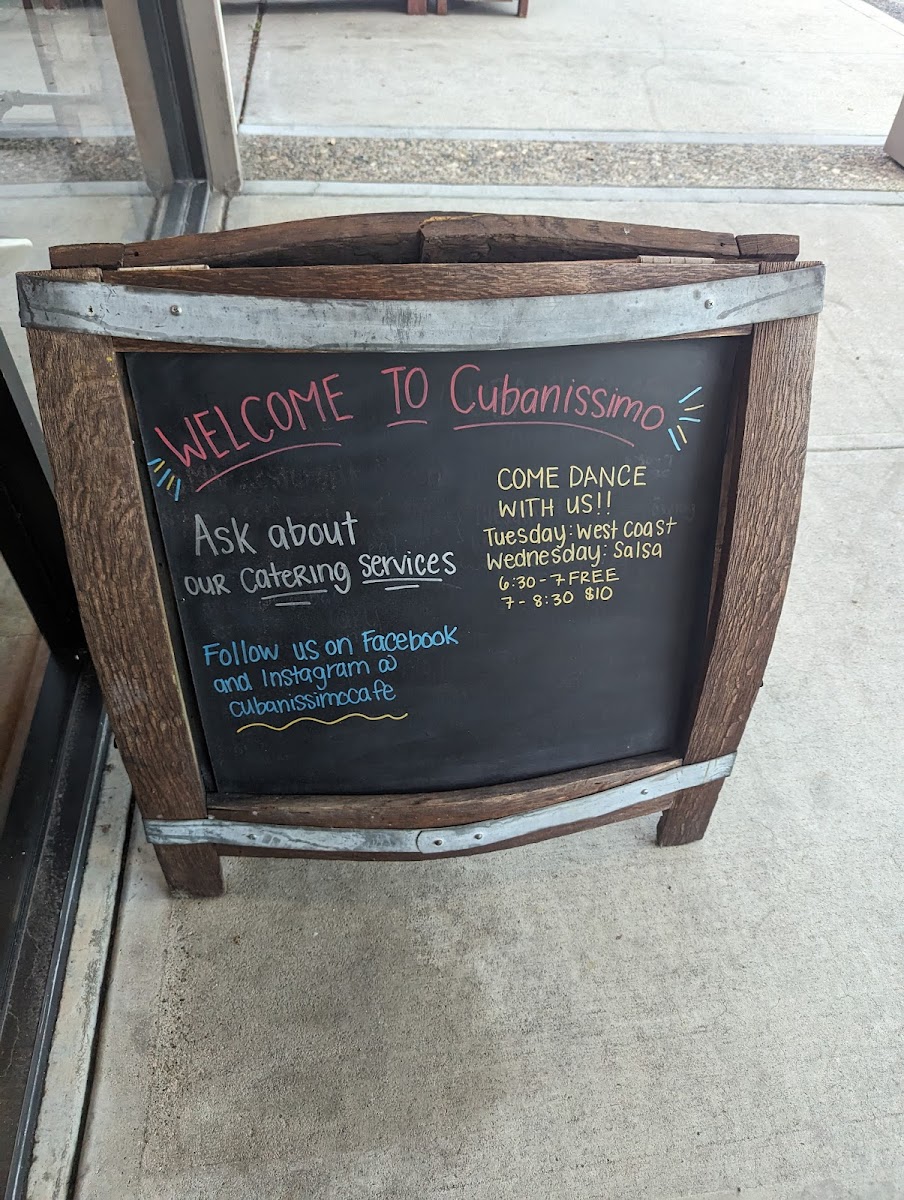 WELCOME TO Cubanissimo
Ask about
our Catering services
Follow us on Facebook
and Instagram @
cubanissimocafe
COME DANCE
WITH US!!
Tuesday: West Coast
Wednesday: Salsa
6:30-7 FREE
7-8:30 $10